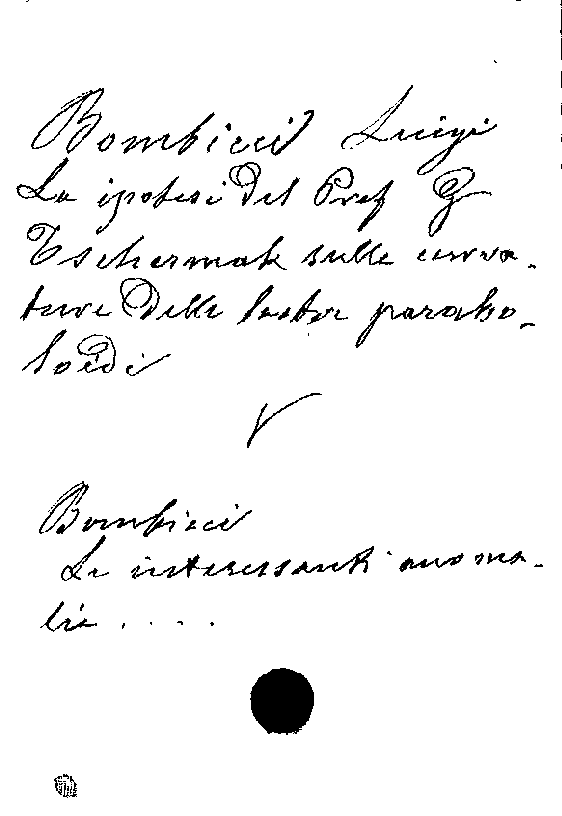 Bombicci Luigi
La ipotesi del Prof G
Tschermak sulle curva-
ture delle parabo-
loidi
V
Bombicci
Le interessanti anoma-
lie ....